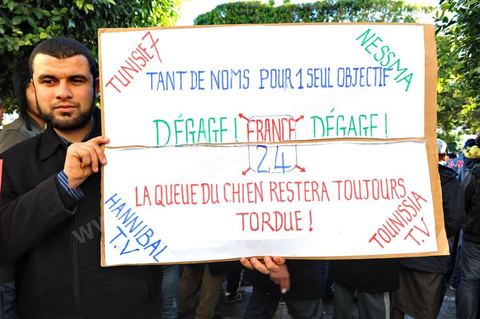 TUNISIE7
NESSMA
TANT DE NOMS POUR 1 SEUL OBJECTIF
DÉGAGE! FRANCE DÉGAGE!
24
LA QUEUE DU CHIEN RESTERA TOUJOURS
TORDUE!
HANNIBAL
T.V
TOUNISSIA
T.V